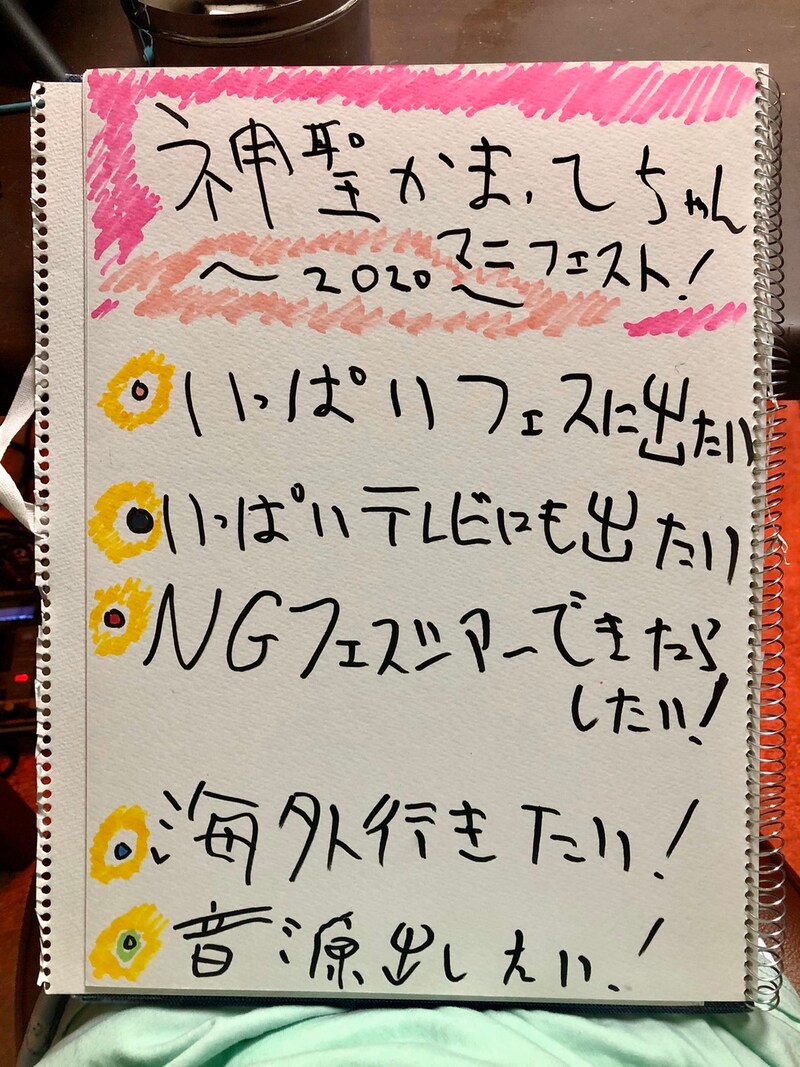 神聖かまってちゃん
〜2020〜マニフェスト!
いっぱいフェスに出たい
いっぱいテレビにも出たい
NGフェスツアーできたら
したい!
海外行きたい!
音源出しえい!